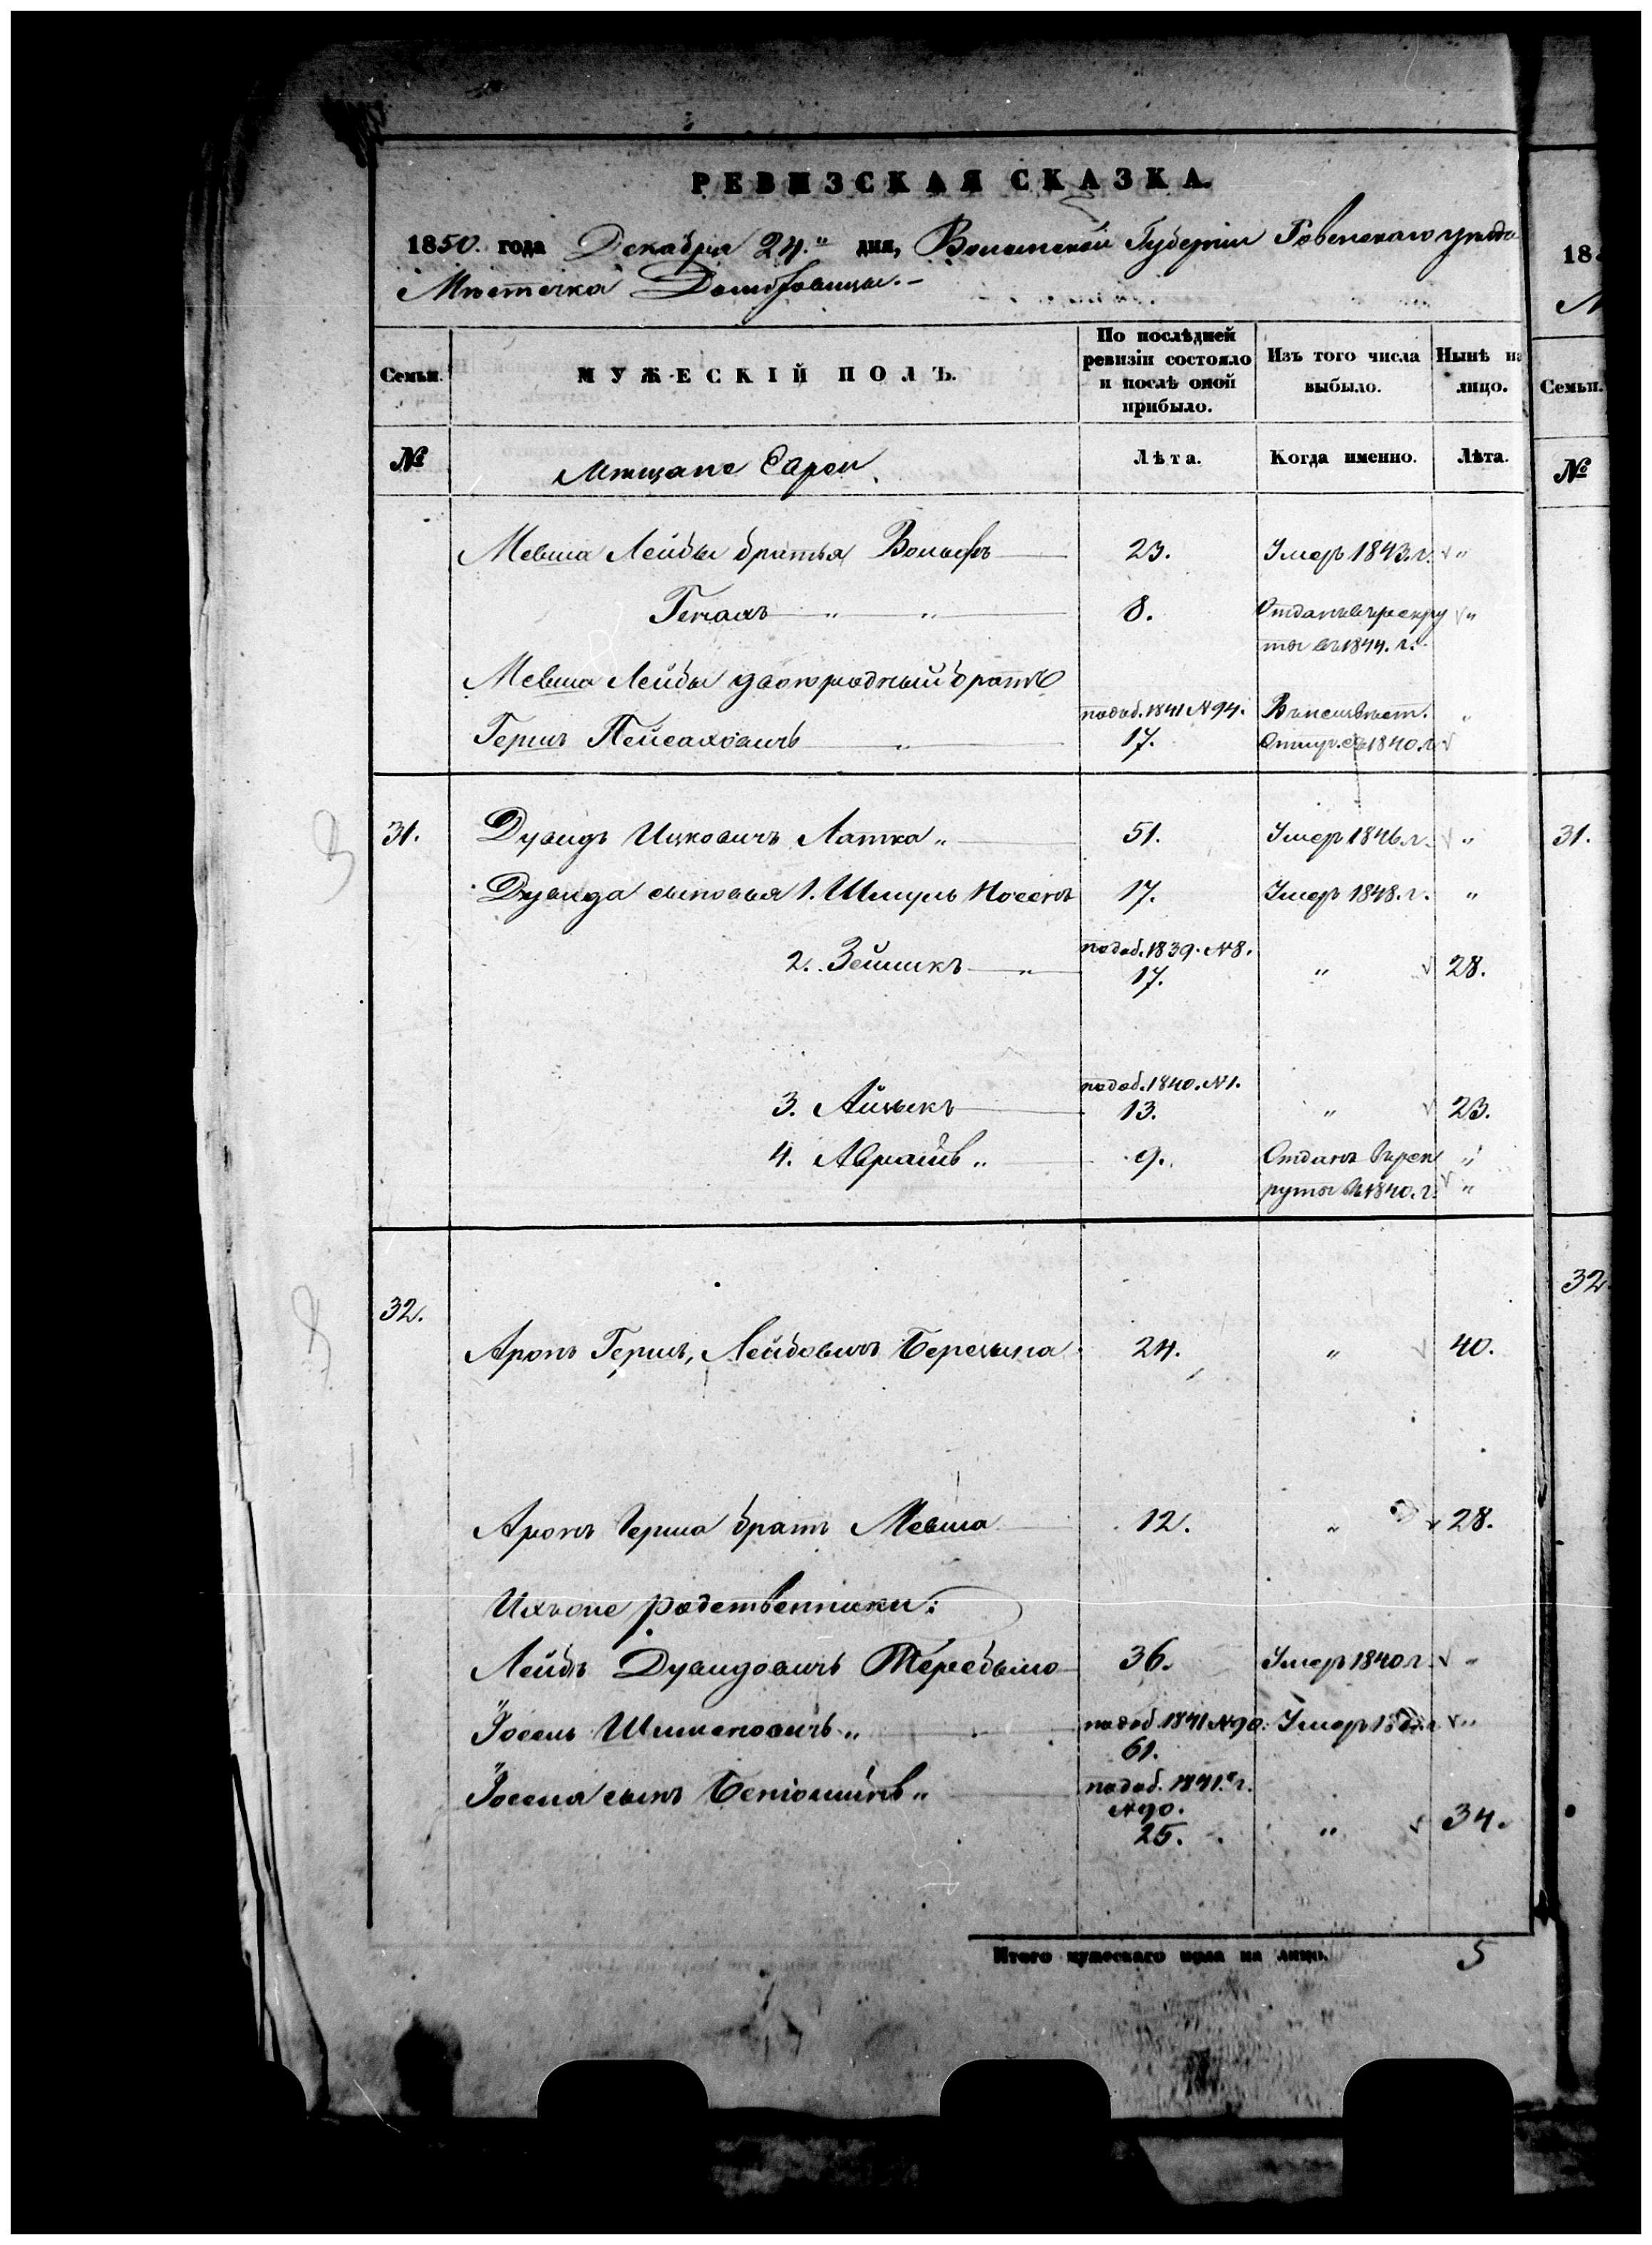 РЕВИЗСКАЯ СКАЗКА.
1850. года Декабря 24." дня, Волынской Губерніи Ровенскаго уезда
Мѣстечка Домбровицы.-
Семьи. МУЖЕСКІЙ ПОЛЪ. По послѣдней ревизіи состояло и послѣ оной прибыло. Изъ того числа выбыло. Нынѣ на лицо. Семьи.
№ Мѣщане Евреи Лѣта. Когда именно. Лѣта. №
Мевша Лейбы братья Вольфъ 23. Умеръ 1843.г. "
Генахъ " " 8. Отданъ въ рекру "
ты въ 1844. г.
Мевша Лейбы двоюродный братъ
по доб. 1841 №94. Въ неизвѣст. "
Гершъ Пейсаховичъ " 17. Отлуч. съ 1840.г.
31. Дувидъ Ицковичъ Латка " 51. Умеръ 1846.г. " 31.
Дувида сыновья 1. Шмуль Носонъ 17. Умеръ 1848.г. "
по доб. 1839. №8.
2. Зейликъ " 17. " 28.
по доб. 1840. №1.
3. Айзыкъ 13. " 23.
4. Авраамъ " 9. Отданъ в рек "
руты въ 1840.г. "
32. 32
Аронъ Гершъ, Лейбовичъ Березына 24. " 40.
Аронъ Герша братъ Мевша 12. " 28.
Ихъ оне родственники:
Лейбъ Дувидовичъ Теребыло 36. Умеръ 1840 г. "
Іосель Шименовичъ " по доб. 1841 №90. Умеръ "
61.
Іоселя сынъ Беніоминъ " по доб. 1841. г.
№90.
25. " 34.
Итого мужескаго пола на лицо. 5